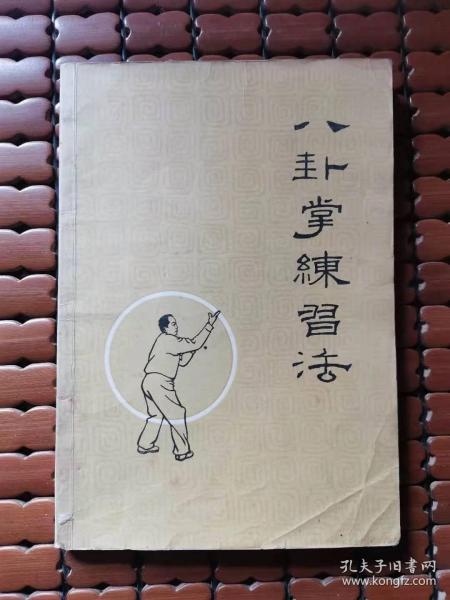 八卦掌練習法
孔夫子旧书网
www.kongfz.com